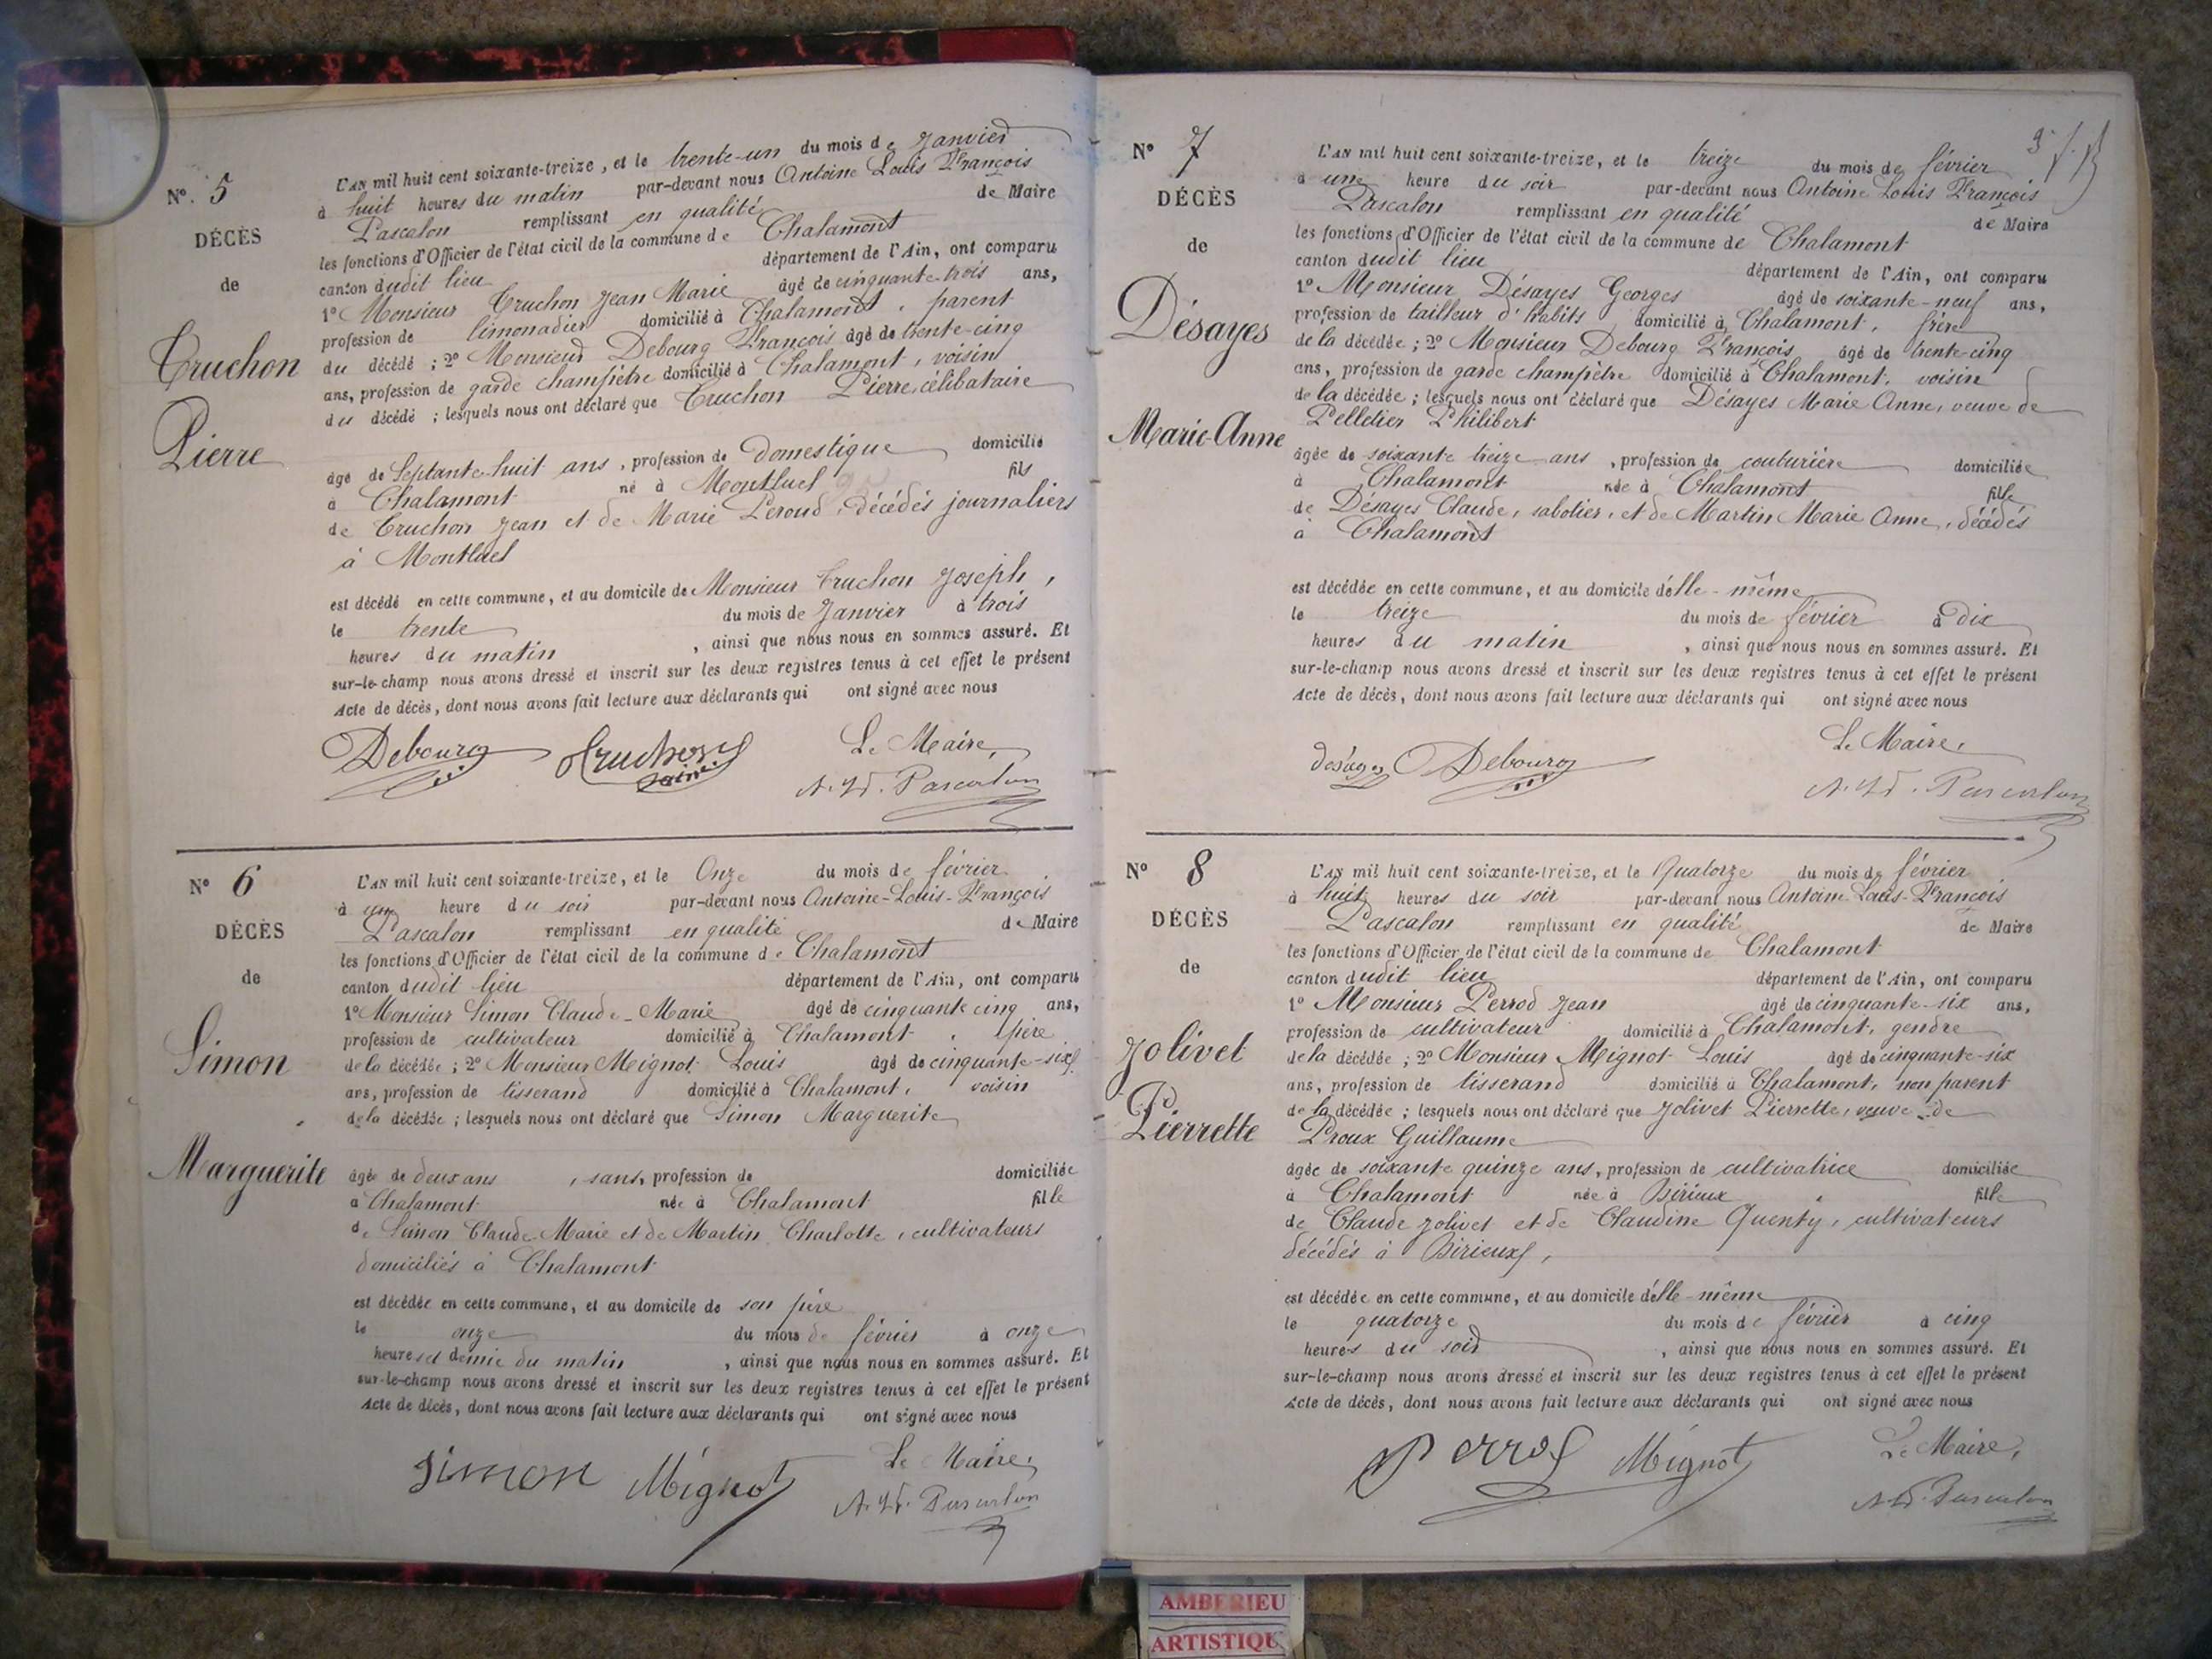 N° 5
DÉCÈS
de
Cruchon
Pierre
L'AN mil huit cent soixante-treize, et le trente-un du mois de Janvier
à huit heures du matin par-devant nous Antoine Louis François
Pascalon remplissant en qualité de Maire
les fonctions d'Officier de l'état civil de la commune de Chalamont
canton dudit lieu département de l'Ain, ont comparu
1° Monsieur Cruchon Jean Marie âgé de cinquante-trois ans,
profession de limonadier domicilié à Chalamont, parent
du décédé ; 2° Monsieur Debourg François âgé de trente-cinq
ans, profession de garde champêtre domicilié à Chalamont, voisin
du décédé ; lesquels nous ont déclaré que Cruchon Pierre, célibataire
âgé de Septante-huit ans, profession de Domestique domicilié
à Chalamont né à Montluel fils
de Cruchon Jean et de Marie Peroud, décédés journaliers
à Montluel
est décédé en cette commune, et au domicile de Monsieur Cruchon Joseph,
le trente du mois de Janvier à trois
heures du matin, ainsi que nous nous en sommes assuré. Et
sur-le-champ nous avons dressé et inscrit sur les deux registres tenus à cet effet le présent
Acte de décès, dont nous avons fait lecture aux déclarants qui ont signé avec nous
Debourg Cruchon Le Maire,
Pascalon
N° 6
DÉCÈS
de
Simon
Marguerite
L'AN mil huit cent soixante-treize, et le Onze du mois de février
à une heure du soir par-devant nous Antoine-Louis-François
Pascalon remplissant en qualité de Maire
les fonctions d'Officier de l'état civil de la commune de Chalamont
canton dudit lieu département de l'Ain, ont comparu
1° Monsieur Simon Claude-Marie âgé de cinquante cinq ans,
profession de cultivateur domicilié à Chalamont, père
de la décédée ; 2° Monsieur Mignot Louis âgé de cinquante-six
ans, profession de tisserand domicilié à Chalamont, voisin
de la décédée ; lesquels nous ont déclaré que Simon Marguerite
âgée de deux ans, sans profession de domiciliée
à Chalamont née à Chalamont fille
de Simon Claude-Marie et de Martin Charlotte, cultivateurs
domiciliés à Chalamont
est décédée en cette commune, et au domicile de son père
le onze du mois de février à onze
heures et demie du matin, ainsi que nous nous en sommes assuré. Et
sur-le-champ nous avons dressé et inscrit sur les deux registres tenus à cet effet le présent
Acte de décès, dont nous avons fait lecture aux déclarants qui ont signé avec nous
Simon Mignot Le Maire,
Pascalon
N° 7
DÉCÈS
de
Désayes
Marie-Anne
L'AN mil huit cent soixante-treize, et le treize du mois de février
à une heure du soir par-devant nous Antoine Louis François
Pascalon remplissant en qualité de Maire
les fonctions d'Officier de l'état civil de la commune de Chalamont
canton dudit lieu département de l'Ain, ont comparu
1° Monsieur Désayes Georges âgé de soixante-neuf ans,
profession de tailleur d'habits domicilié à Chalamont, frère
de la décédée ; 2° Monsieur Debourg François âgé de trente-cinq
ans, profession de garde champêtre domicilié à Chalamont, voisin
de la décédée ; lesquels nous ont déclaré que Désayes Marie Anne, veuve de
Pelletier Philibert
âgée de soixante treize ans, profession de couturière domiciliée
à Chalamont née à Chalamont fille
de Désayes Claude, sabotier, et de Martin Marie Anne, décédés
à Chalamont
est décédée en cette commune, et au domicile d'elle-même
le treize du mois de février à dix
heures du matin, ainsi que nous nous en sommes assuré. Et
sur-le-champ nous avons dressé et inscrit sur les deux registres tenus à cet effet le présent
Acte de décès, dont nous avons fait lecture aux déclarants qui ont signé avec nous
Debourg Le Maire,
Pascalon
N° 8
DÉCÈS
de
Jolivet
Pierrette
L'AN mil huit cent soixante-treize, et le Quatorze du mois de février
à huit heures du soir par-devant nous Antoine Louis-François
Pascalon remplissant en qualité de Maire
les fonctions d'Officier de l'état civil de la commune de Chalamont
canton dudit lieu département de l'Ain, ont comparu
1° Monsieur Perrod Jean âgé de cinquante-six ans,
profession de cultivateur domicilié à Chalamont, gendre
de la décédée ; 2° Monsieur Mignot Louis âgé de cinquante-six
ans, profession de tisserand domicilié à Chalamont, non parent
de la décédée ; lesquels nous ont déclaré que Jolivet Pierrette, veuve de
Proux Guillaume
âgée de soixante quinze ans, profession de cultivatrice domiciliée
à Chalamont née à Birieux fille
de Claude Jolivet et de Claudine Quenty, cultivateurs
décédés à Birieux,
est décédée en cette commune, et au domicile d'elle-même
le quatorze du mois de février à cinq
heures du soir, ainsi que nous nous en sommes assuré. Et
sur-le-champ nous avons dressé et inscrit sur les deux registres tenus à cet effet le présent
Acte de décès, dont nous avons fait lecture aux déclarants qui ont signé avec nous
Perrod Mignot Le Maire,
Pascalon
AMBERIEU
ARTISTIQU